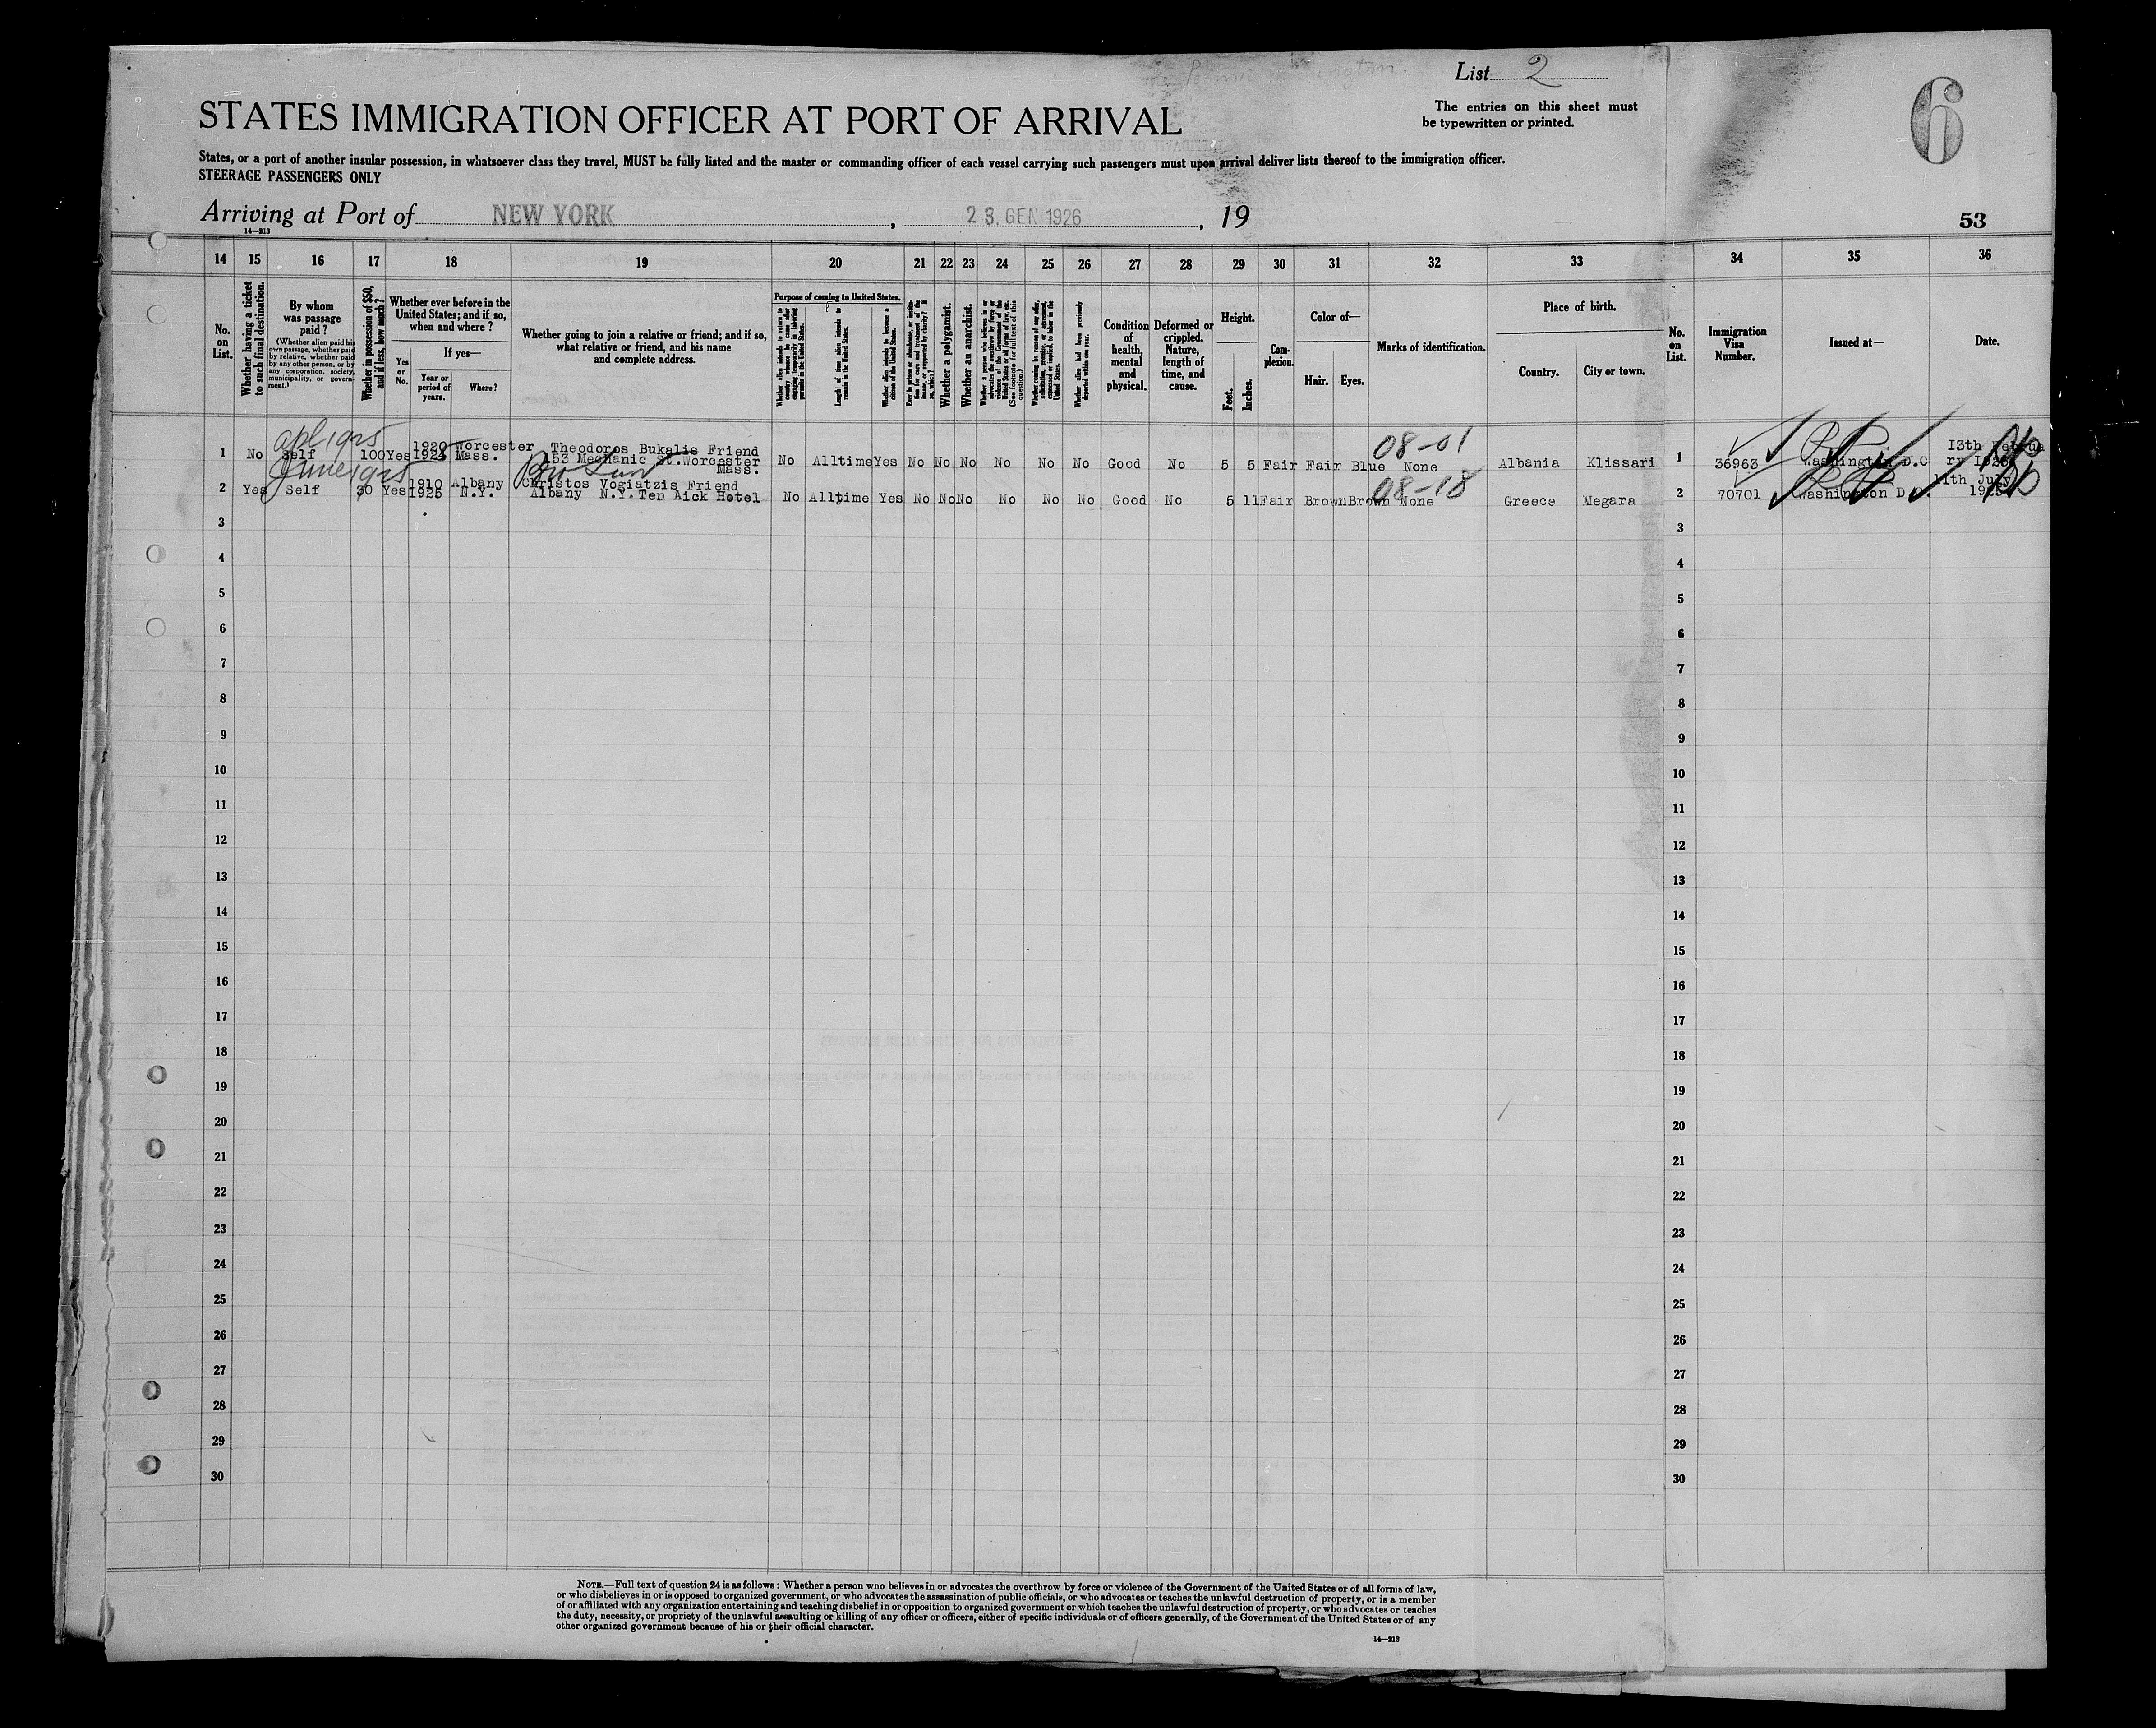 List 2
STATES IMMIGRATION OFFICER AT PORT OF ARRIVAL
The entries on this sheet must
be typewritten or printed.
6
States, or a port of another insular possession, in whatsoever class they travel, MUST be fully listed and the master or commanding officer of each vessel carrying such passengers must upon arrival deliver lists thereof to the immigration officer.
STEERAGE PASSENGERS ONLY
Arriving at Port of NEW YORK, 23. GEN 1926, 19
53
14—213
14 15 16 17 18 19 20 21 22 23 24 25 26 27 28 29 30 31 32 33 34 35 36
No. on List.
Whether having a ticket to such final destination.
By whom was passage paid?
(Whether alien paid his own passage, whether paid by relative, whether paid by any other person, or by any corporation, society, municipality, or government.)
Whether in possession of $50, and if less, how much?
Whether ever before in the United States; and if so, when and where?
Yes or No.
If yes—
Year or period of years.
Where?
Whether going to join a relative or friend; and if so, what relative or friend, and his name and complete address.
Purpose of coming to United States.
Whether alien intends to return to country whence he came after engaging temporarily in laboring pursuits in the United States.
Length of time alien intends to remain in the United States.
Whether alien intends to become a citizen of the United States.
Ever in prison or almshouse, or institution for care and treatment of the insane, or supported by charity? If so, which?
Whether a polygamist.
Whether an anarchist.
Whether a person who believes in or advocates the overthrow by force or violence of the Government of the United States or all forms of law, etc. (See footnote for full text of this question.)
Whether coming by reason of any offer, solicitation, promise, or agreement, expressed or implied, to labor in the United States.
Whether alien had been previously deported within one year.
Condition of health, mental and physical.
Deformed or crippled. Nature, length of time, and cause.
Height.
Feet.
Inches.
Complexion.
Color of—
Hair.
Eyes.
Marks of identification.
Place of birth.
Country.
City or town.
No. on List.
Immigration Visa Number.
Issued at—
Date.
apl 1925
08-01
1 No Self 100 Yes 1920 1925 Worcester Mass. Theodoros Bukalis Friend
153 Mechanic St. Worcester Mass.
No Alltime Yes No No No No No No Good No 5 5 Fair Fair Blue None Albania Klissari 1 36963 Washington D.C 13th Februa
June 1925
08-18
2 Yes Self 30 Yes 1910 1925 Albany N.Y. Christos Vogiatzis Friend
Albany N.Y. Ten Aick Hotel
No Alltime Yes No No No No No No Good No 5 11 Fair Brown Brown None Greece Megara 2 70701 Washington D.C. 11th July
3 3
4 4
5 5
6 6
7 7
8 8
9 9
10 10
11 11
12 12
13 13
14 14
15 15
16 16
17 17
18 18
19 19
20 20
21 21
22 22
23 23
24 24
25 25
26 26
27 27
28 28
29 29
30 30
NOTE.—Full text of question 24 is as follows: Whether a person who believes in or advocates the overthrow by force or violence of the Government of the United States or of all forms of law,
or who disbelieves in or is opposed to organized government, or who advocates the assassination of public officials, or who advocates or teaches the unlawful destruction of property, or is a member
of or affiliated with any organization entertaining and teaching disbelief in or opposition to organized government or which teaches the unlawful destruction of property, or who advocates or teaches
the duty, necessity, or propriety of the unlawful assaulting or killing of any officer or officers, either of specific individuals or of officers generally, of the Government of the United States or of any
other organized government because of his or their official character.
14—213